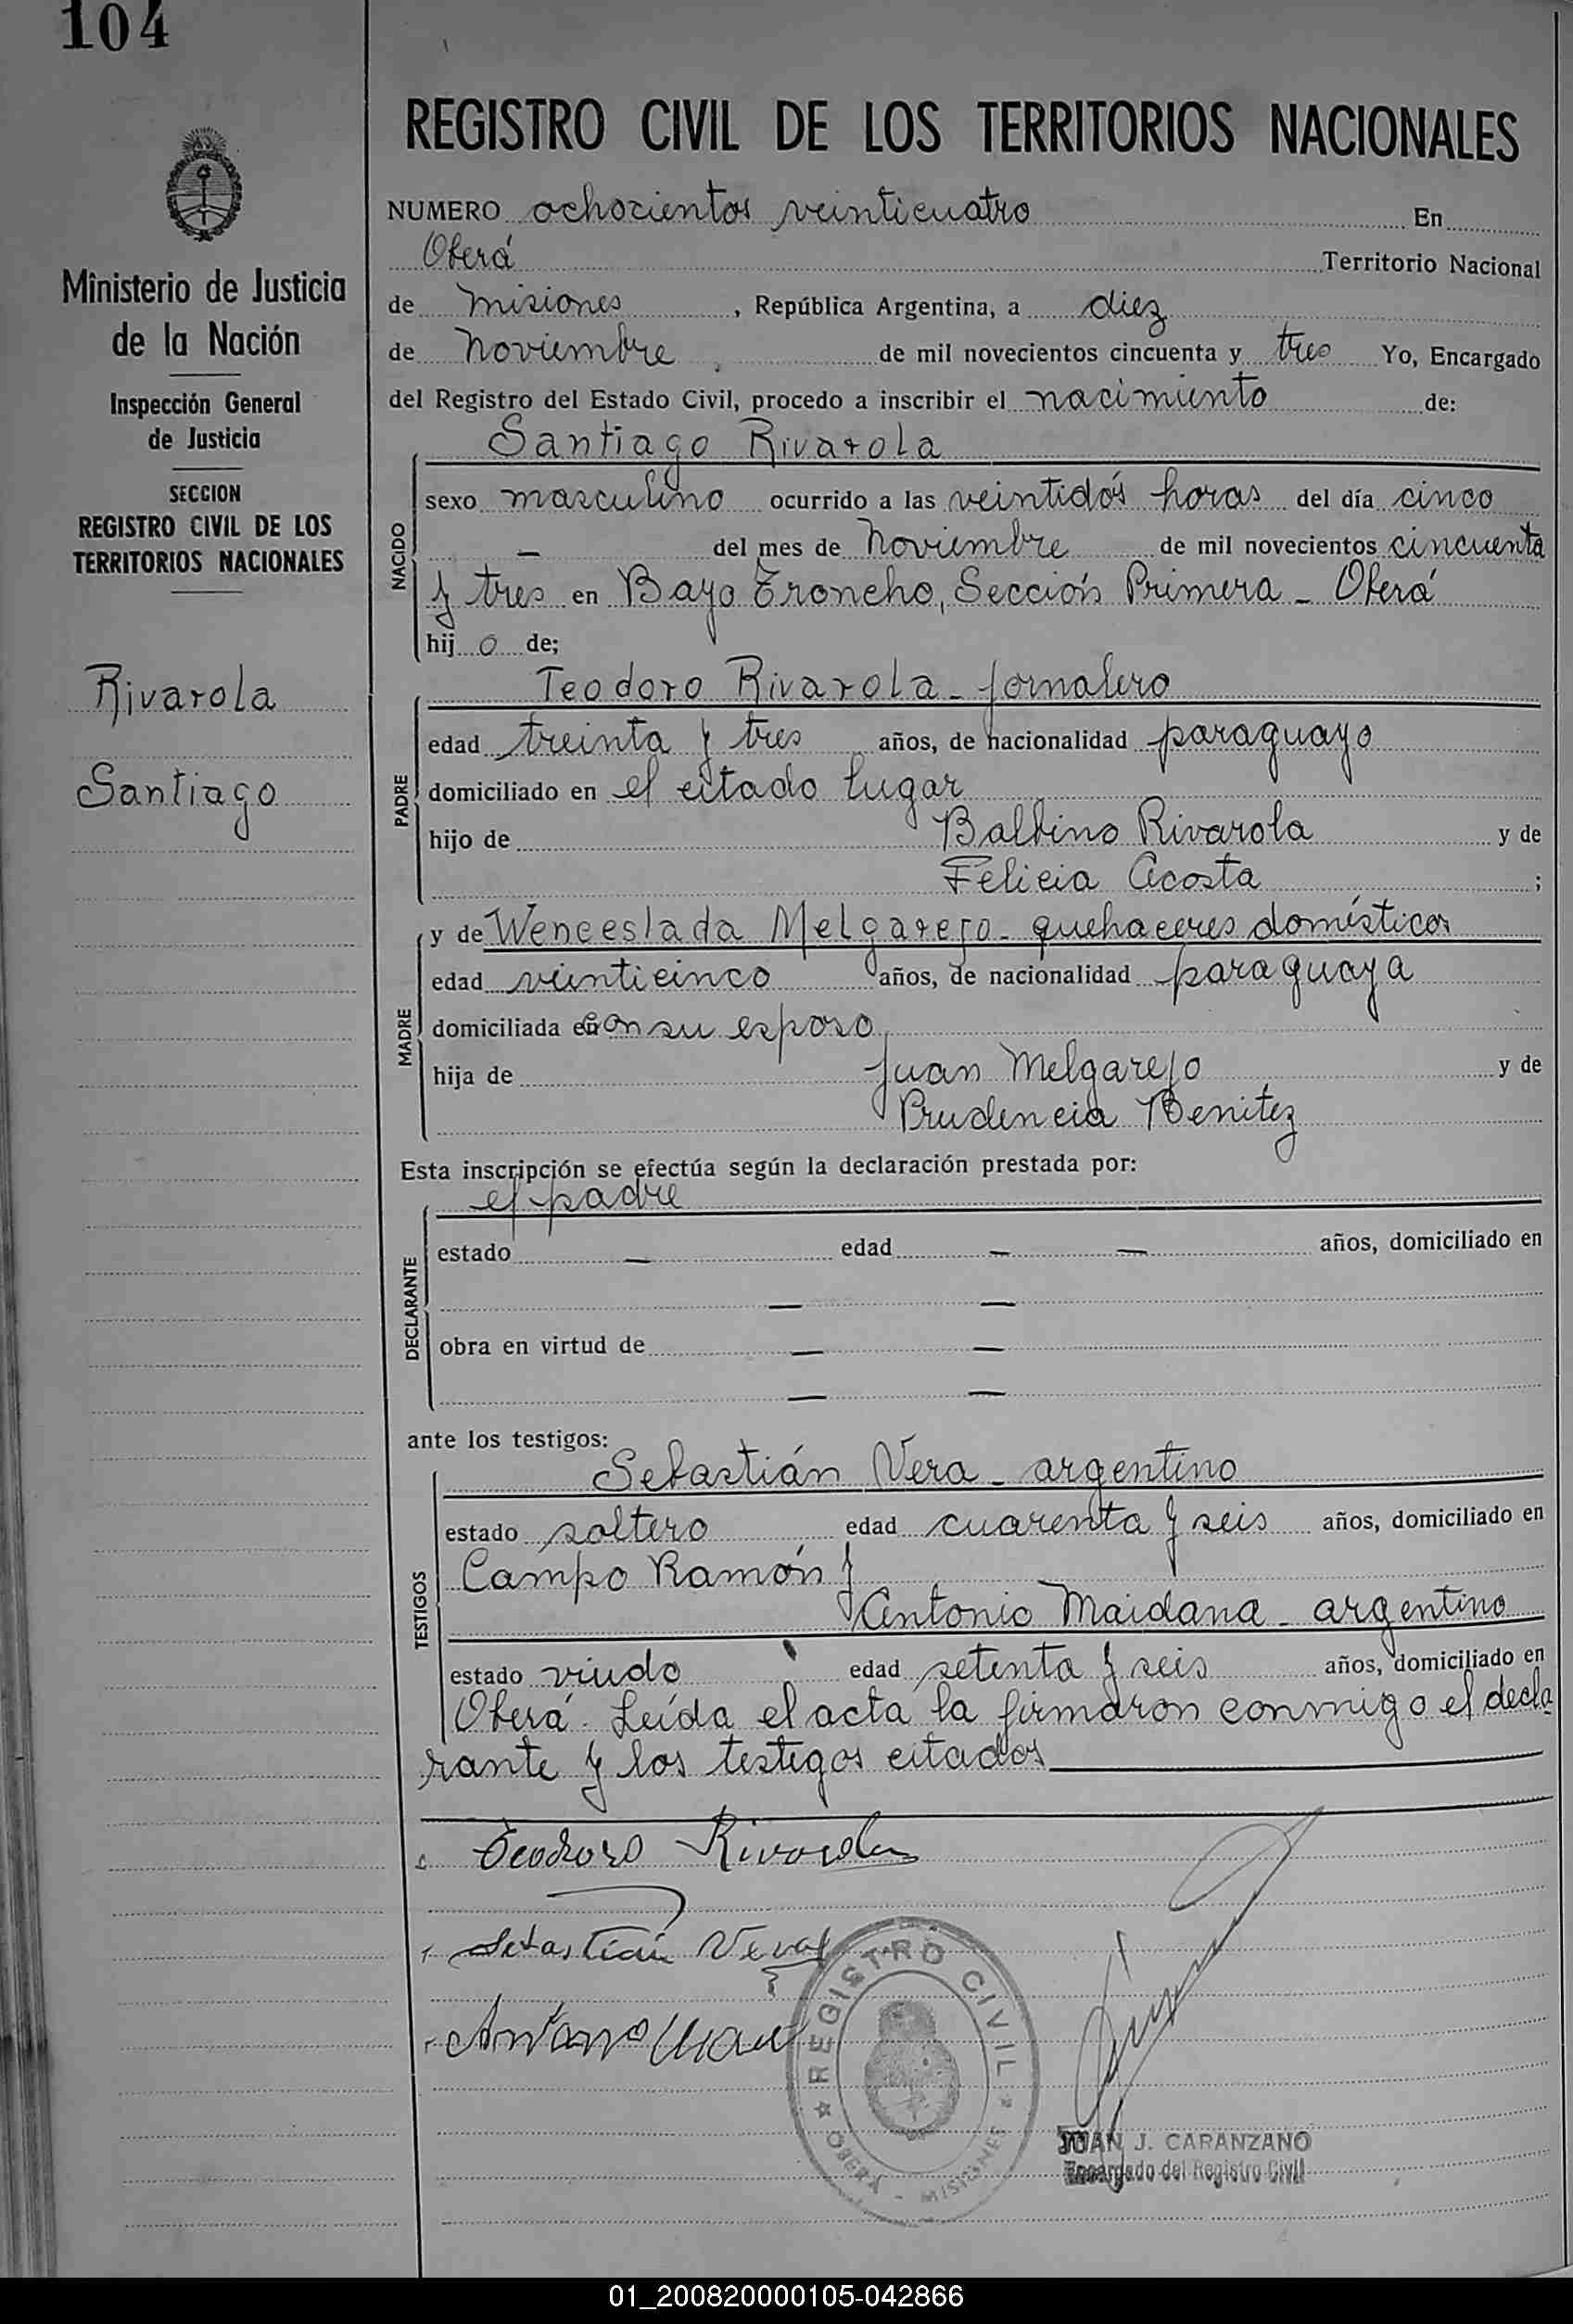 104
REGISTRO CIVIL DE LOS TERRITORIOS NACIONALES
Ministerio de Justicia
de la Nación
Inspección General
de Justicia
SECCION
REGISTRO CIVIL DE LOS
TERRITORIOS NACIONALES
Rivarola
Santiago
NUMERO ochocientos veinticuatro En
Oberá Territorio Nacional
de Misiones, República Argentina, a diez
de Noviembre de mil novecientos cincuenta y tres Yo, Encargado
del Registro del Estado Civil, procedo a inscribir el nacimiento de:
Santiago Rivarola
NACIDO
sexo masculino ocurrido a las veintidós horas del día cinco
— del mes de Noviembre de mil novecientos cincuenta
y tres en Bayo Troncho, Sección Primera - Oberá
hijo de;
Teodoro Rivarola - jornalero
PADRE
edad treinta y tres años, de nacionalidad paraguayo
domiciliado en el citado lugar
hijo de Balbino Rivarola y de
Felicia Acosta ;
y de Wenceslada Melgarejo - quehaceres domésticos
MADRE
edad veinticinco años, de nacionalidad paraguaya
domiciliada en con su esposo
hija de Juan Melgarejo y de
Prudencia Benitez
Esta inscripción se efectúa según la declaración prestada por:
el padre
DECLARANTE
estado — edad — — años, domiciliado en
— —
obra en virtud de — —
— —
ante los testigos:
Sebastián Vera - argentino
TESTIGOS
estado soltero edad cuarenta y seis años, domiciliado en
Campo Ramón y
Antonio Maidana - argentino
estado viudo edad setenta y seis años, domiciliado en
Oberá. Leída el acta la firmaron conmigo el decla-
rante y los testigos citados
Teodoro Rivarola
Sebastián Vera
REGISTRO CIVIL
OBERA - MISIONES
JUAN J. CARANZANO
Encargado del Registro Civil
01_200820000105-042866